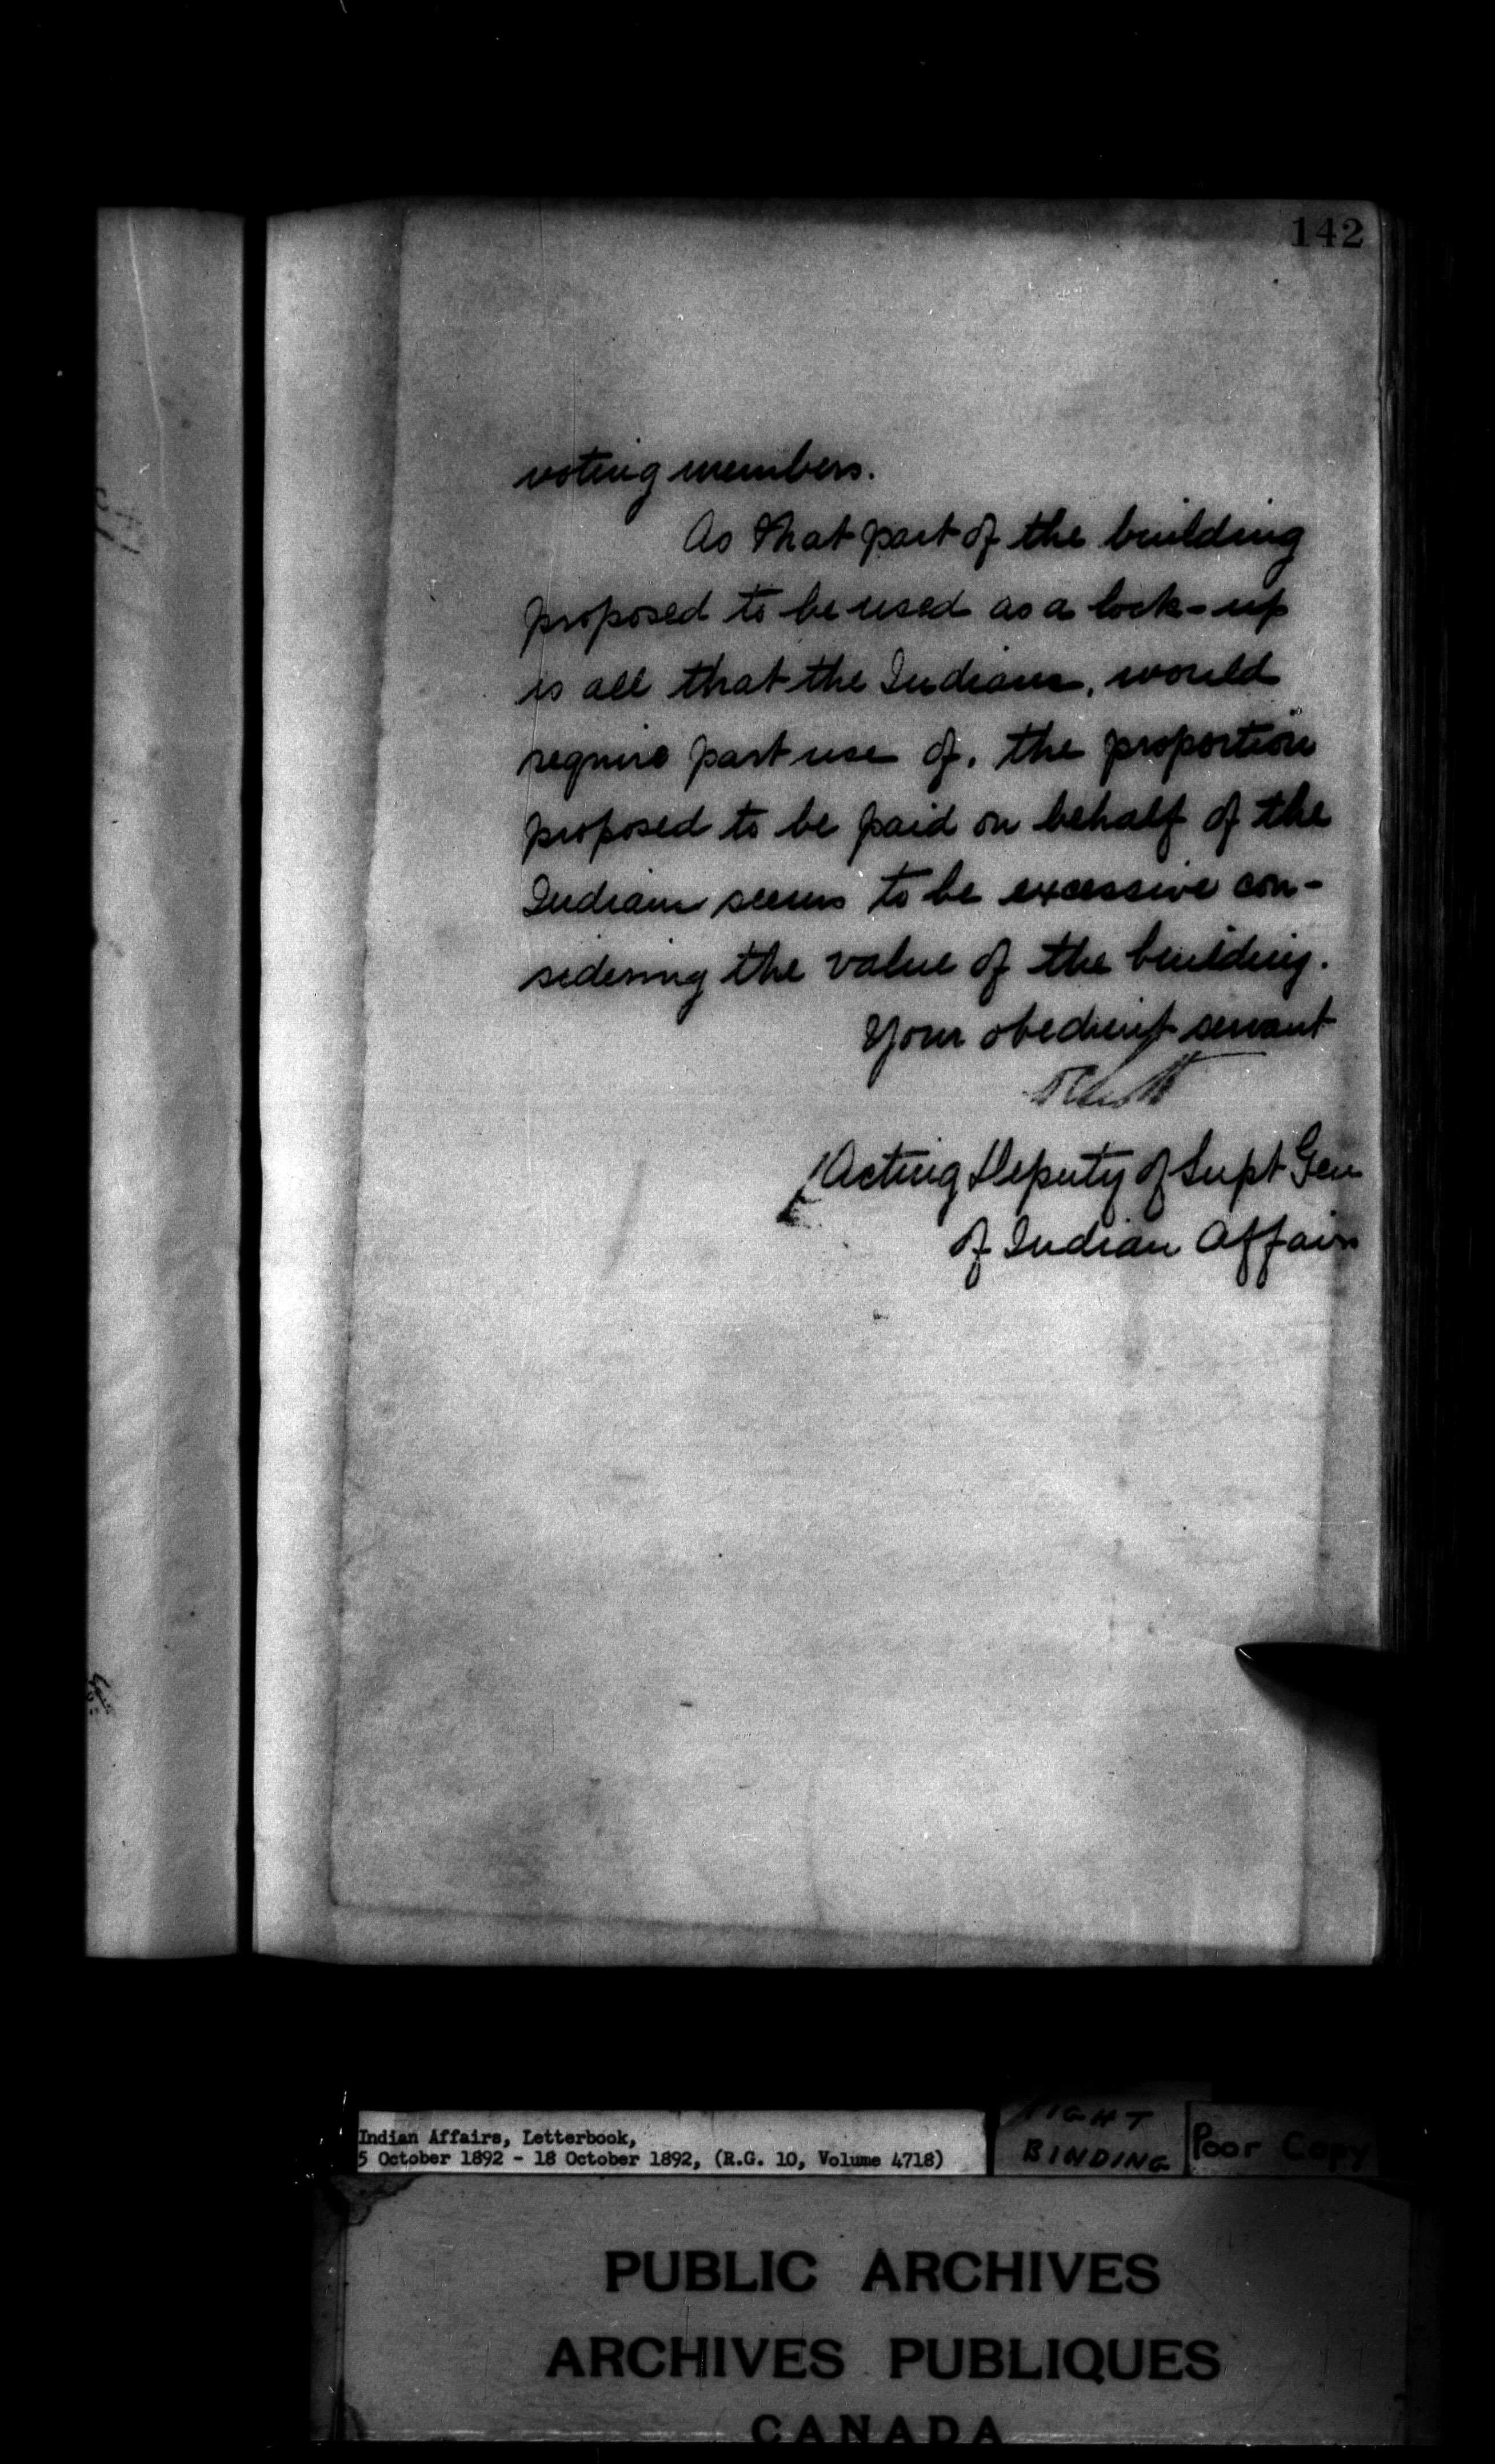 142
voting members.
As that part of the building
proposed to be used as a lock-up
is all that the Indians, would
require part use of, the proportion
proposed to be paid on behalf of the
Indians seems to be excessive con-
sidering the value of the building.
Your obedient servant
Acting Deputy of Supt Gen
of Indian Affairs
Indian Affairs, Letterbook,
5 October 1892 - 18 October 1892, (R.G. 10, Volume 4718)
BINDING
Poor Copy
PUBLIC ARCHIVES
ARCHIVES PUBLIQUES
CANADA